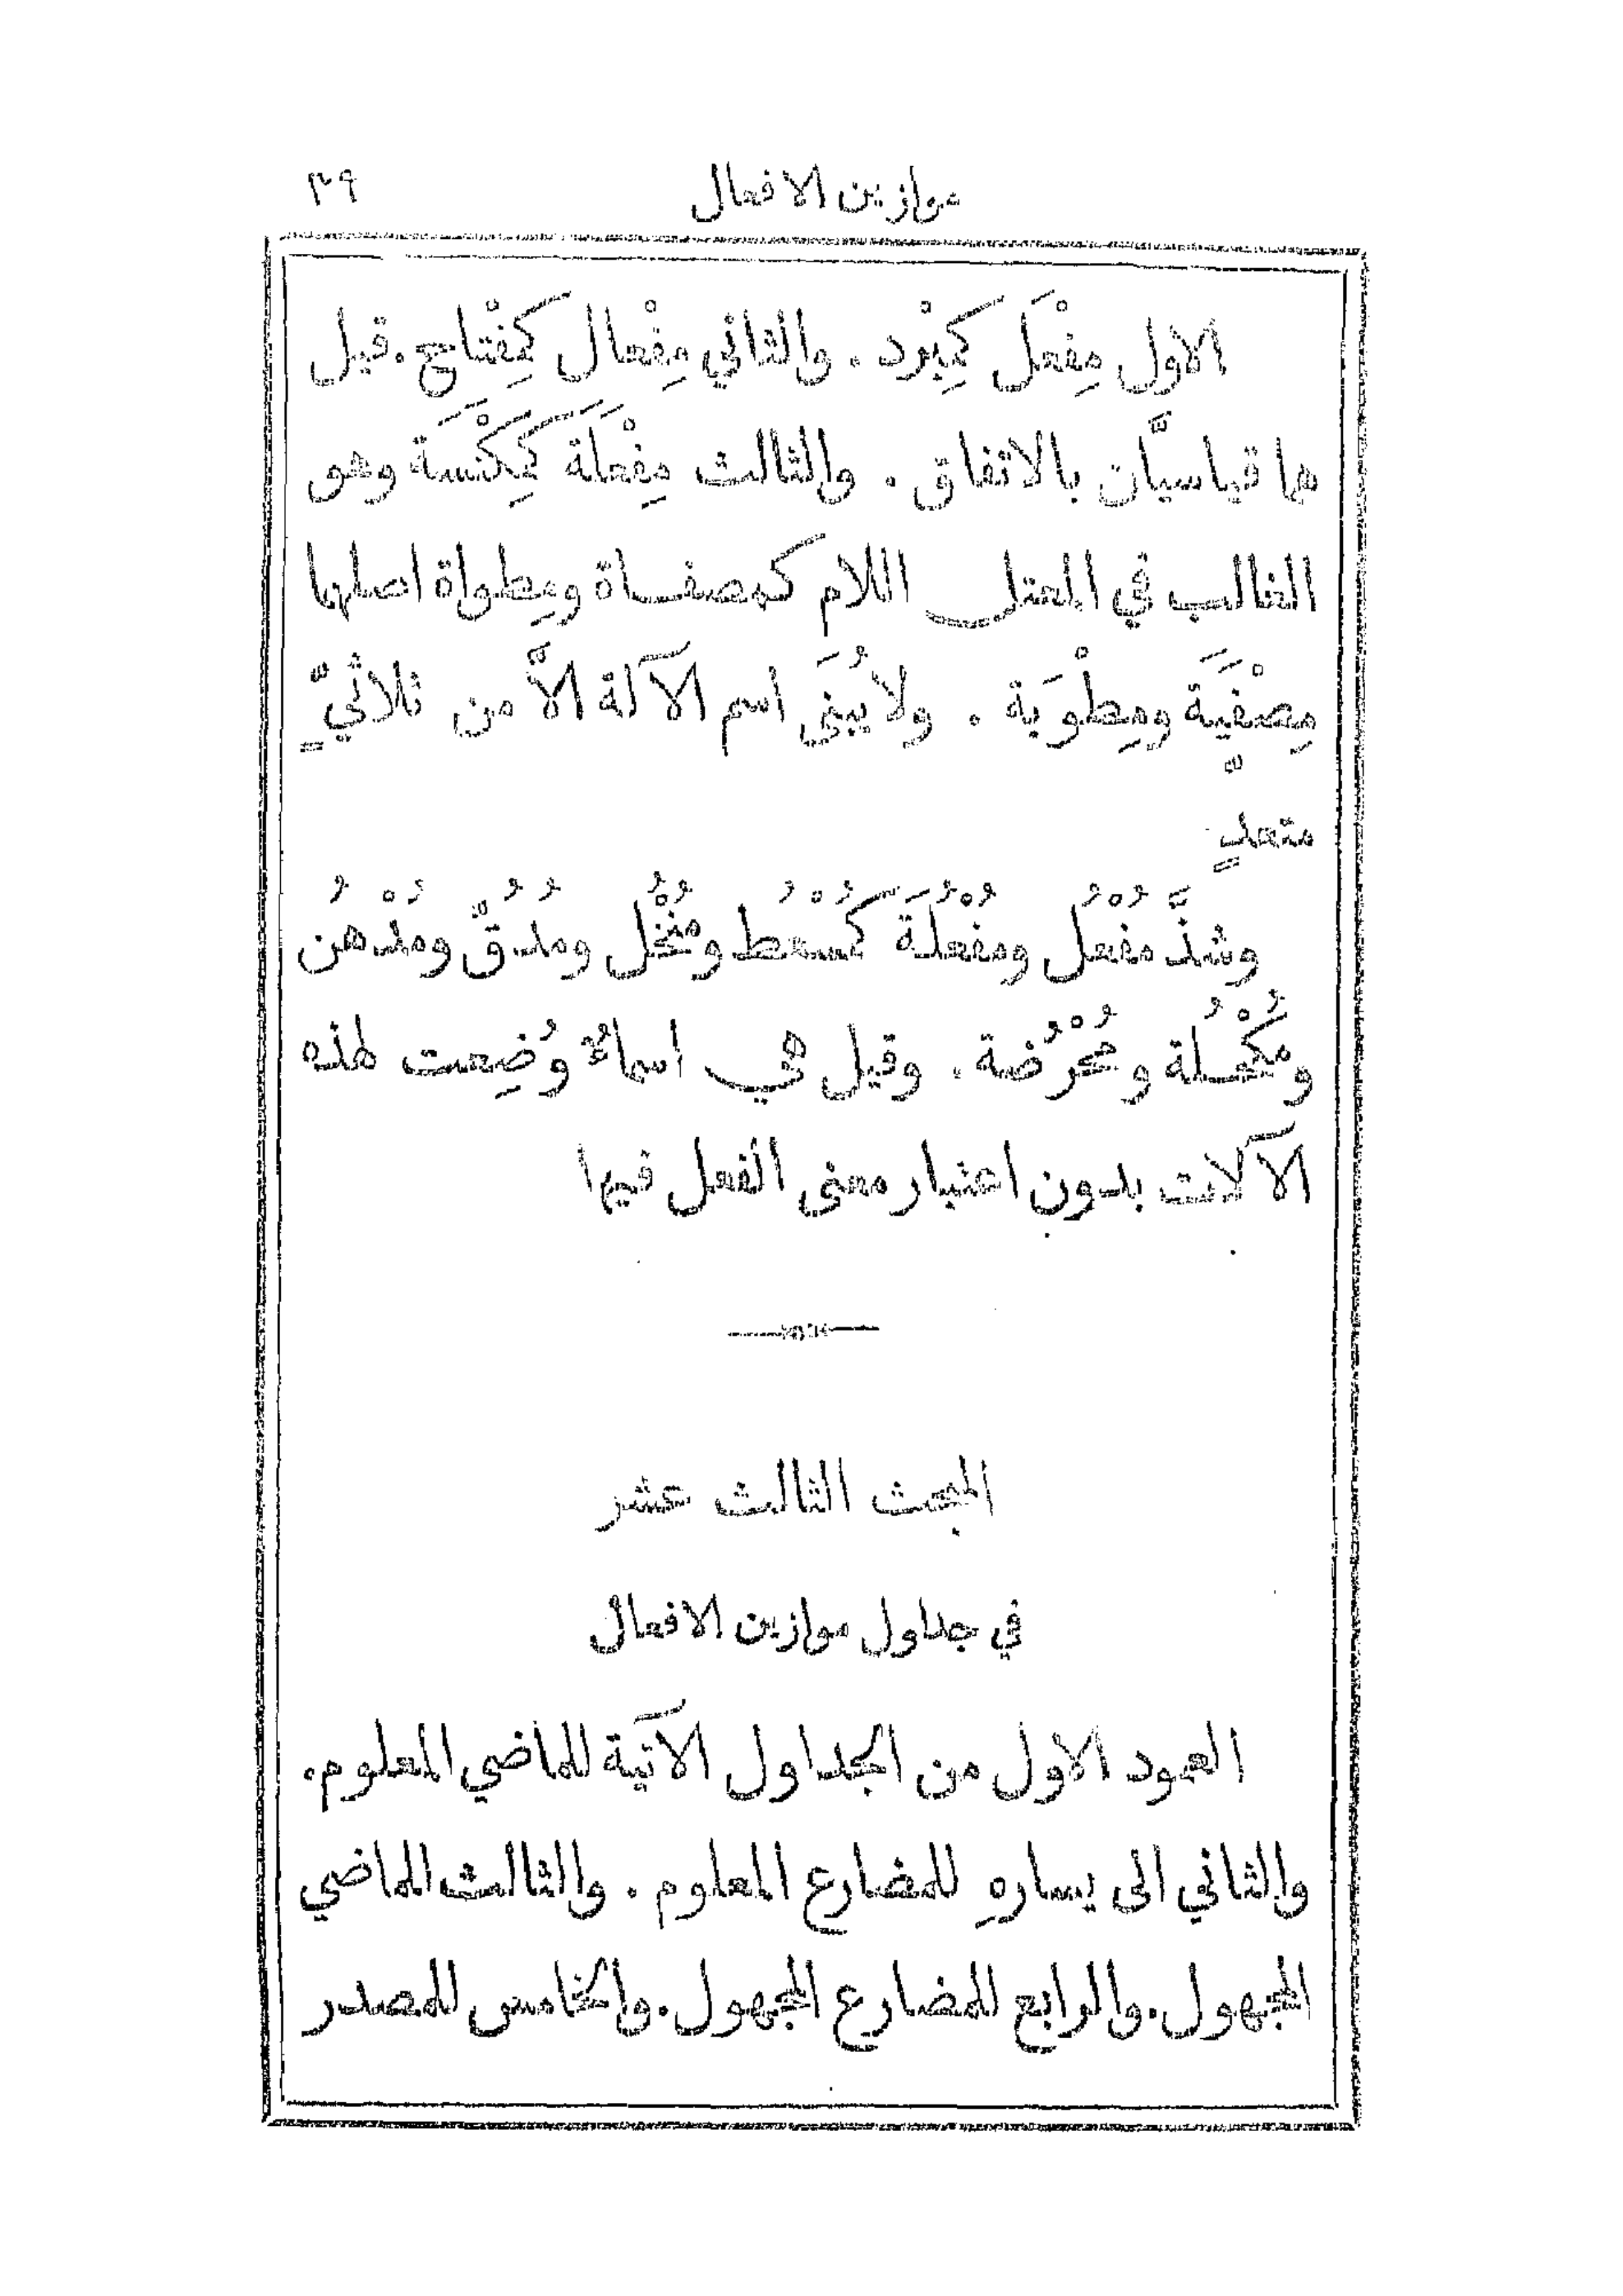 موازين الافعال ٣٩
الاول مِفْعَل كَمِبْرَد . والثاني مِفْعال كَمِفْتاح . قيل
هما قياسيَّان بالاتفاق . والثالث مِفْعَلَة كَمِكْنَسَة وهو
الغالب في المعتل اللام كمصفاة ومِطواة اصلهما
مِصْفَيَة ومِطْوَية . ولا يُبنَى اسم الآلة الَّا من ثلاثيٍّ
متعدٍّ
وشذَّ مُفْعُل ومُفْعُلَة كَمُسْعُط ومُنْخُل ومُدُقّ ومُدْهُن
ومُكْحُلة ومُحْرُضة . وقيل هي اسماءٌ وُضِعت لهذه
الآلات بدون اعتبار معنى الفعل فيها
المبحث الثالث عشر
في جداول موازين الافعال
العمود الاول من الجداول الآتية للماضي المعلوم .
والثاني الى يسارهِ للمضارع المعلوم . والثالث للماضي
المجهول . والرابع للمضارع المجهول . والخامس للمصدر